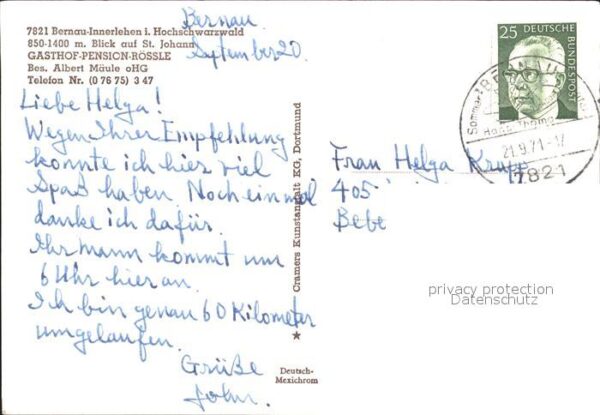 7821 Bernau-Innerlehen i. Hochschwarzwald
850-1400 m. Blick auf St. Johann
GASTHOF-PENSION-RÖSSLE
Bes. Albert Mäule oHG
Telefon Nr. (0 76 75) 3 47
Bernau
September 20.
Liebe Helga!
Wegen Ihrer Empfehlung
konnte ich hier viel
Spaß haben. Noch einmal
danke ich dafür.
Ihr Mann kommt um
6 Uhr hier an.
Ich bin genau 60 Kilometer
umgelaufen.
Grüße
John.
Cramers Kunstanstalt KG, Dortmund
Deutsch-
Mexichrom
25 DEUTSCHE
BUNDESPOST
BERNAU
Sommer
Hans Thoma
21.9.71-17
7821
Frau Helga
405
Bebe
privacy protection
Datenschutz